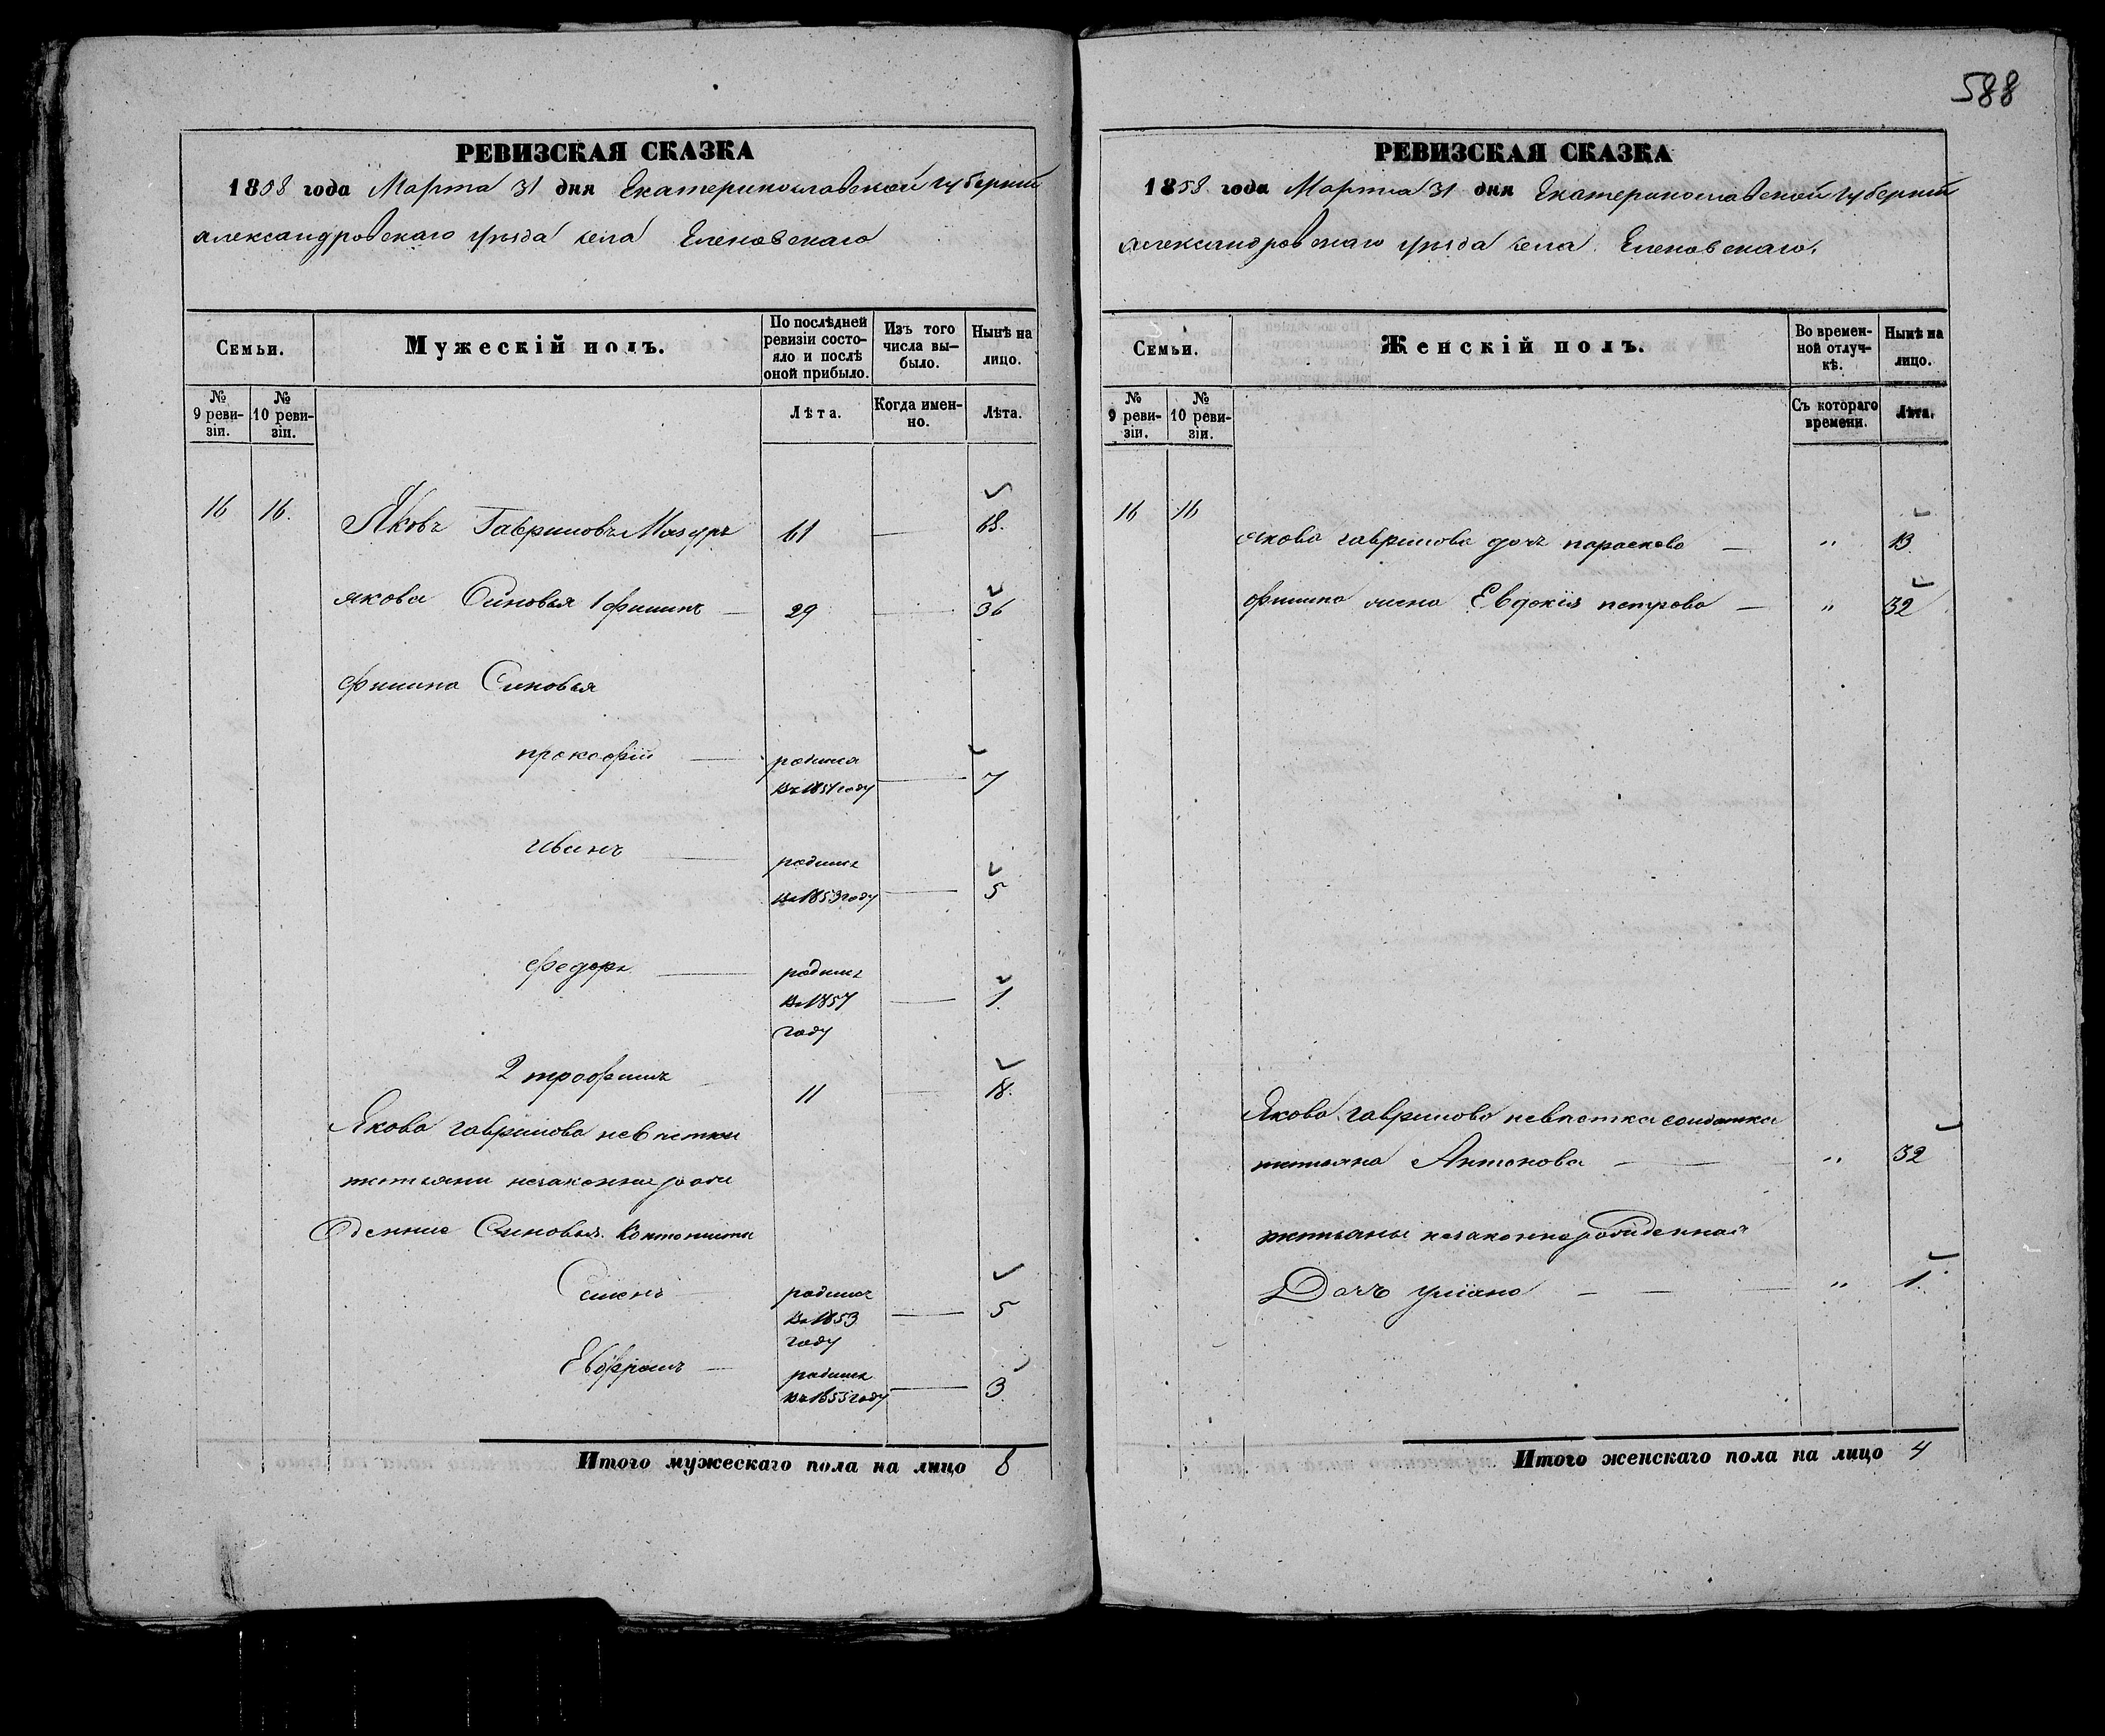 588
РЕВИЗСКАЯ СКАЗКА
1858 года Марта 31 дня Екатеринославской губерніи
александровскаго уѣзда села Еленовскаго
Семьи.
Мужескій полъ.
По послѣдней ревизіи состояло и послѣ оной прибыло.
Изъ того числа выбыло.
Нынѣ на лицо.
№ 9 ревизіи.
№ 10 ревизіи.
Лѣта.
Когда именно.
Лѣта.
16 16. Яковъ Гавриловъ Мазуръ 61 — 68.
якова Синовья 1 филипъ — 29 — 36
филипа Синовья
прокофій — родился
въ 1851 году — 7
иванъ — родился
въ 1853 году — 5
федоръ — родился
въ 1857 — 1.
году
2 трофимъ 11 — 18.
Якова гаврилова невѣстки
татьяни незаконно рож
денние Синовья. Кантонисты
Симонъ — родился
въ 1853 — 5
году
Ефромъ — родился
въ 1855 году — 3.
Итого мужескаго пола на лицо 8
РЕВИЗСКАЯ СКАЗКА
1858 года Марта 31 дня Екатеринославской губерніи
александровскаго уѣзда села Еленовскаго.
Семьи.
Женскій полъ.
Во временной отлучкѣ.
Нынѣ на лицо.
№ 9 ревизіи.
№ 10 ревизіи.
Съ котораго времени.
Лѣта.
16 16
якова гаврилова дочь параскева — " 13.
филипа жена Евдокія петрова — " 32
Якова гаврилова невѣстка солдатка
татьяна Антонова — — " 32
татьяны незаконнорожденная
Дочь уліана — — " 1.
Итого женскаго пола на лицо 4